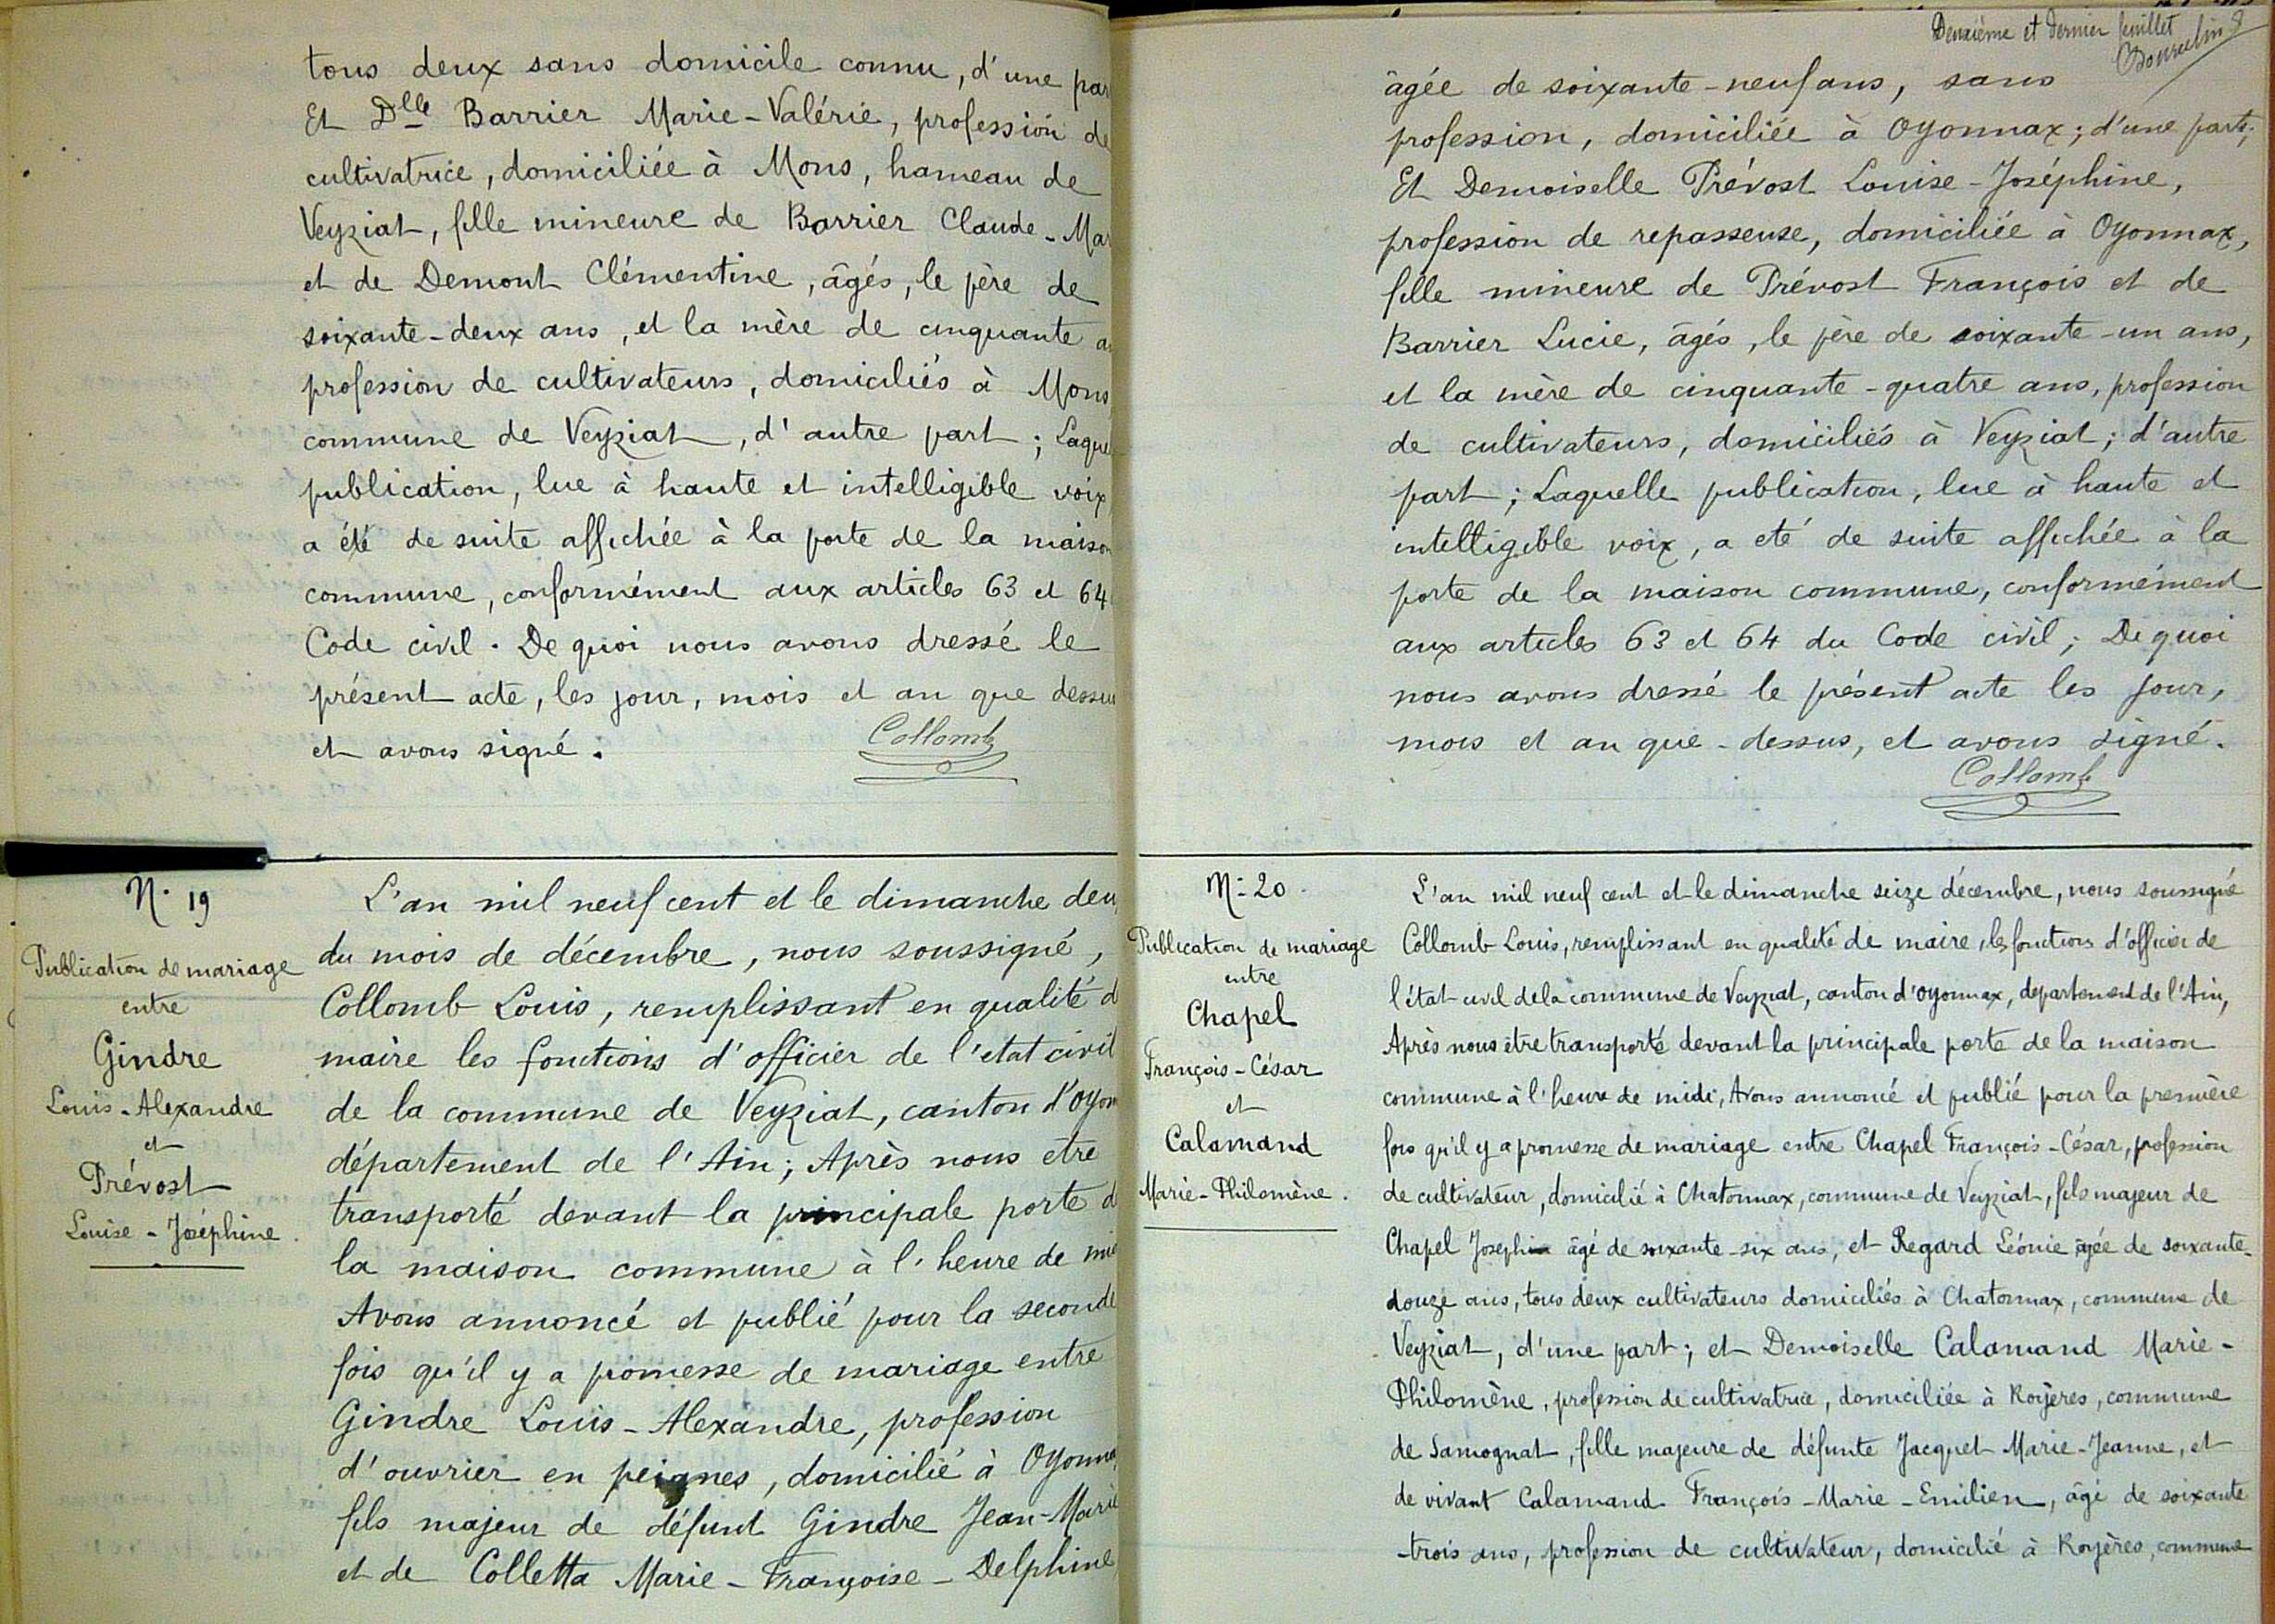 tous deux sans domicile connu, d'une par
Et Dlle Barrier Marie-Valérie, profession de
cultivatrice, domiciliée à Mons, hameau de
Veyziat, fille mineure de Barrier Claude-Mar
et de Demont Clémentine, âgés, le père de
soixante-deux ans, et la mère de cinquante a
profession de cultivateurs, domiciliés à Mons
commune de Veyziat, d'autre part; Laque
publication, lue à haute et intelligible voix
a été de suite affichée à la porte de la maison
commune, conformément aux articles 63 et 64
Code civil. De quoi nous avons dressé le
présent acte, les jour, mois et an que dessu
et avons signé.
Collomb
N° 19
Publication de mariage
entre
Gindre
Louis-Alexandre
et
Prévost
Louise-Joséphine.
L'an mil neuf cent et le dimanche deu
du mois de décembre, nous soussigné,
Collomb Louis, remplissant en qualité d
maire les fonctions d'officier de l'etat civil
de la commune de Veyziat, canton d'Oyon
département de l'Ain; Après nous etre
transporté devant la principale porte d
la maison commune à l'heure de mi
Avons annoncé et publié pour la seconde
fois qu'il y a promesse de mariage entre
Gindre Louis-Alexandre, profession
d'ouvrier en peignes, domicilié à Oyonna
fils majeur de défunt Gindre Jean-Marie
et de Colletta Marie-Françoise-Delphine
Deuxième et dernier feuillet
âgée de soixante-neuf ans, sans
profession, domiciliée à Oyonnax; d'une part;
Et Demoiselle Prévost Louise-Joséphine,
profession de repasseuse, domiciliée à Oyonnax,
fille mineure de Prévost François et de
Barrier Lucie, âgés, le père de soixante-un ans,
et la mère de cinquante-quatre ans, profession
de cultivateurs, domiciliés à Veyziat; d'autre
part; Laquelle publication, lue à haute et
intelligible voix, a eté de suite affichée à la
porte de la maison commune, conformément
aux articles 63 et 64 du Code civil; De quoi
nous avons dressé le présent acte les jour,
mois et an que-dessus, et avons signé.
Collomb
N° 20.
Publication de mariage
entre
Chapel
François-César
et
Calamand
Marie-Philomène.
L'an mil neuf cent et le dimanche seize décembre, nous soussigné
Collomb Louis, remplissant en qualité de maire, les fonctions d'officier de
l'état-civil de la commune de Veyziat, canton d'Oyonnax, departement de l'Ain,
Après nous être transporté devant la principale porte de la maison
commune à l'heure de midi, Avons annoncé et publié pour la première
fois qu'il y a promesse de mariage entre Chapel François-César, profession
de cultivateur, domicilié à Chatonnax, commune de Veyziat, fils majeur de
Chapel Joseph âgé de soixante-six ans, et Regard Léonie âgée de soixante-
douze ans, tous deux cultivateurs domiciliés à Chatonnax, commune de
Veyziat, d'une part; et Demoiselle Calamand Marie-
Philomène, profession de cultivatrice, domiciliée à Royères, commune
de Samognat, fille majeure de défunte Jacquet Marie-Jeanne, et
de vivant Calamand François-Marie-Emilien, âgé de soixante
-trois ans, profession de cultivateur, domicilié à Royères, commune